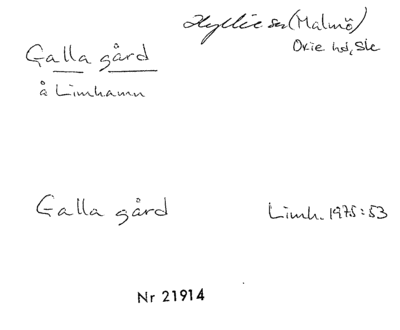 Hyllie sn (Malmö)
Oxie hd, Sk
Galla gård
å Limhamn
Galla gård
Limh. 1975:53
Nr 21914